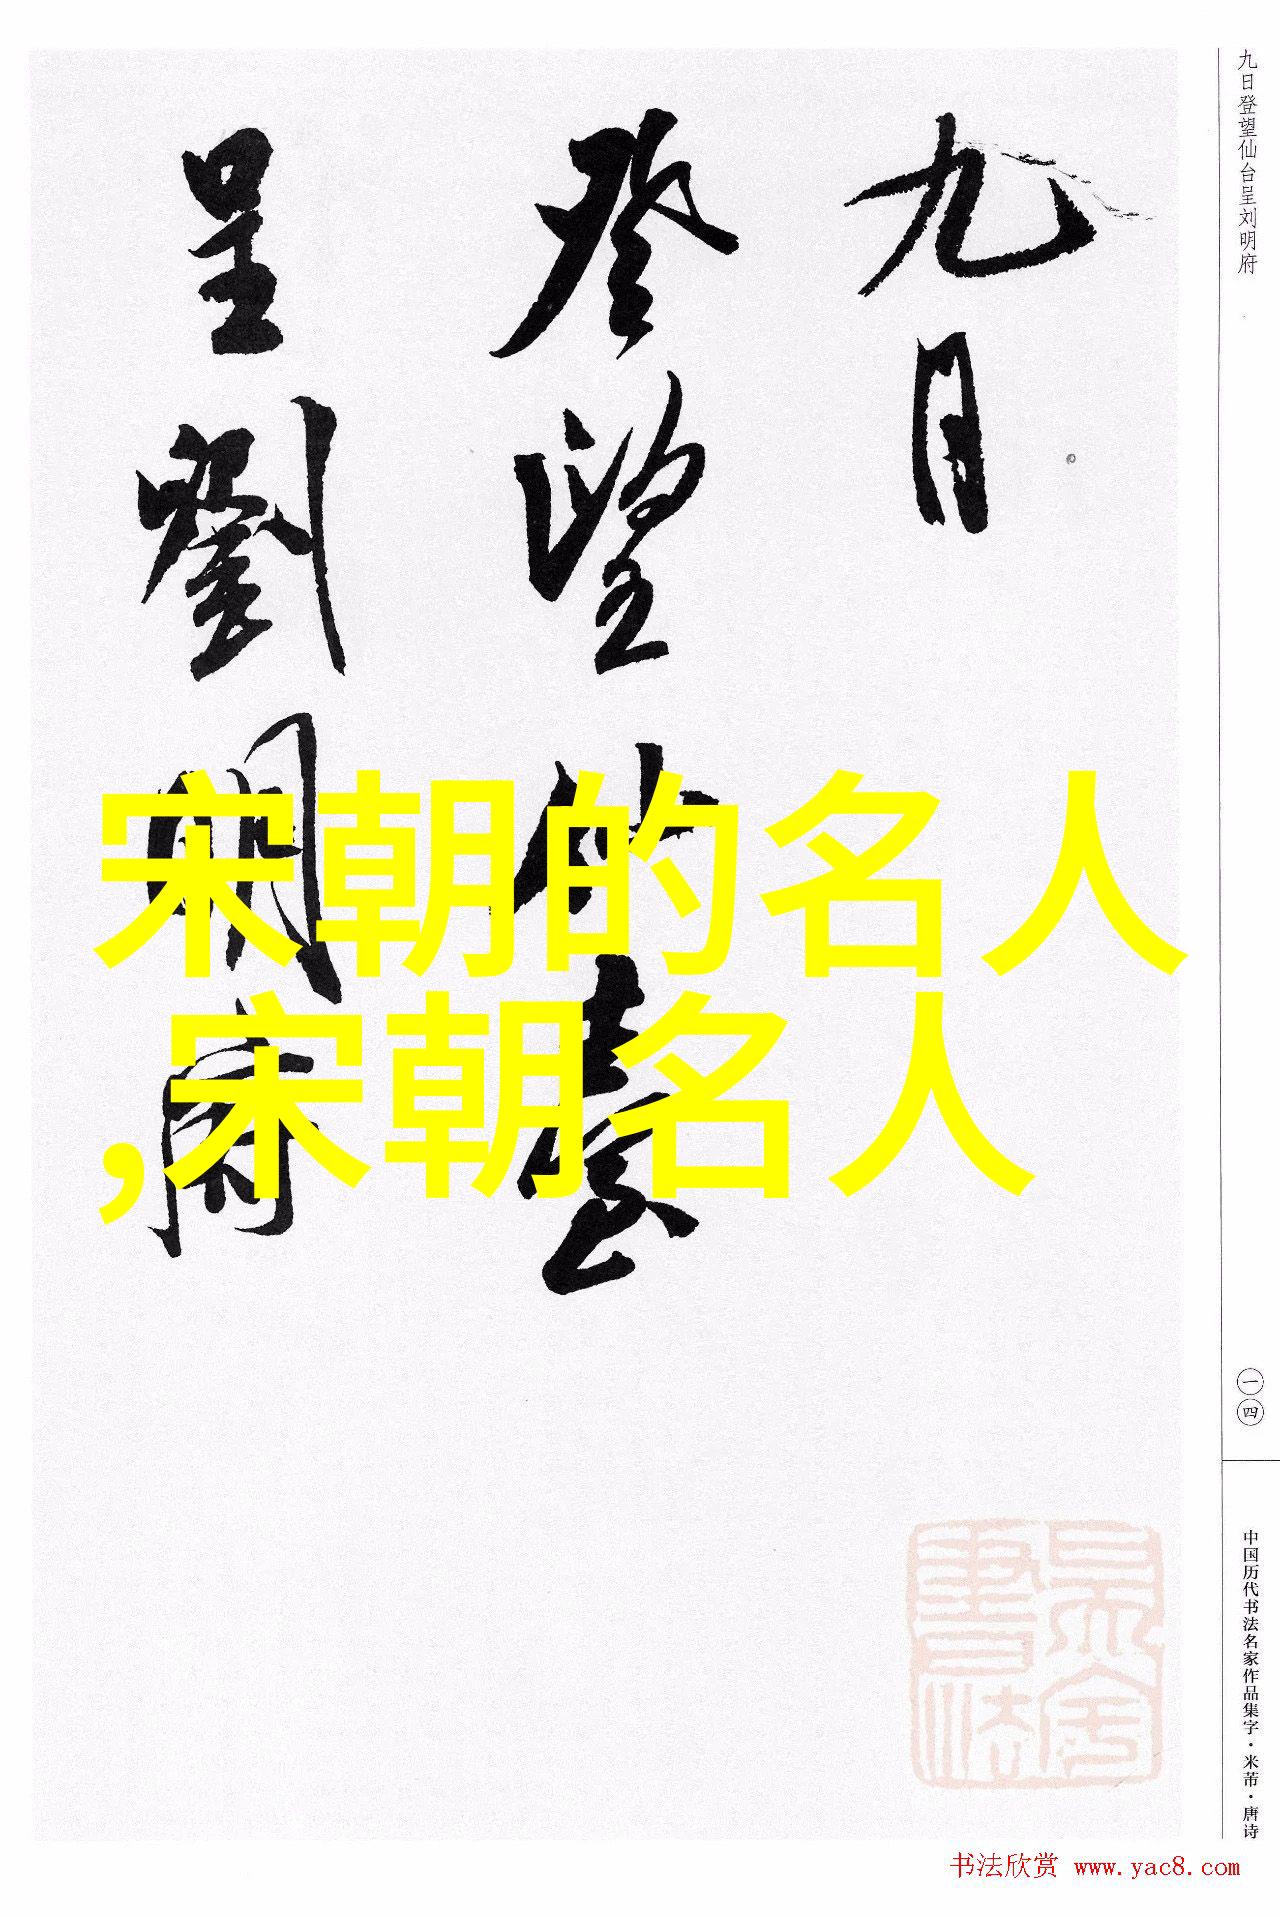 九日登望仙台呈刘明府
九日
登望仙臺
呈劉明府
宋朝的名人
,宋朝名人
一四
中国历代书法名家作品集字·米芾·唐诗
书法欣赏 www.yac8.com